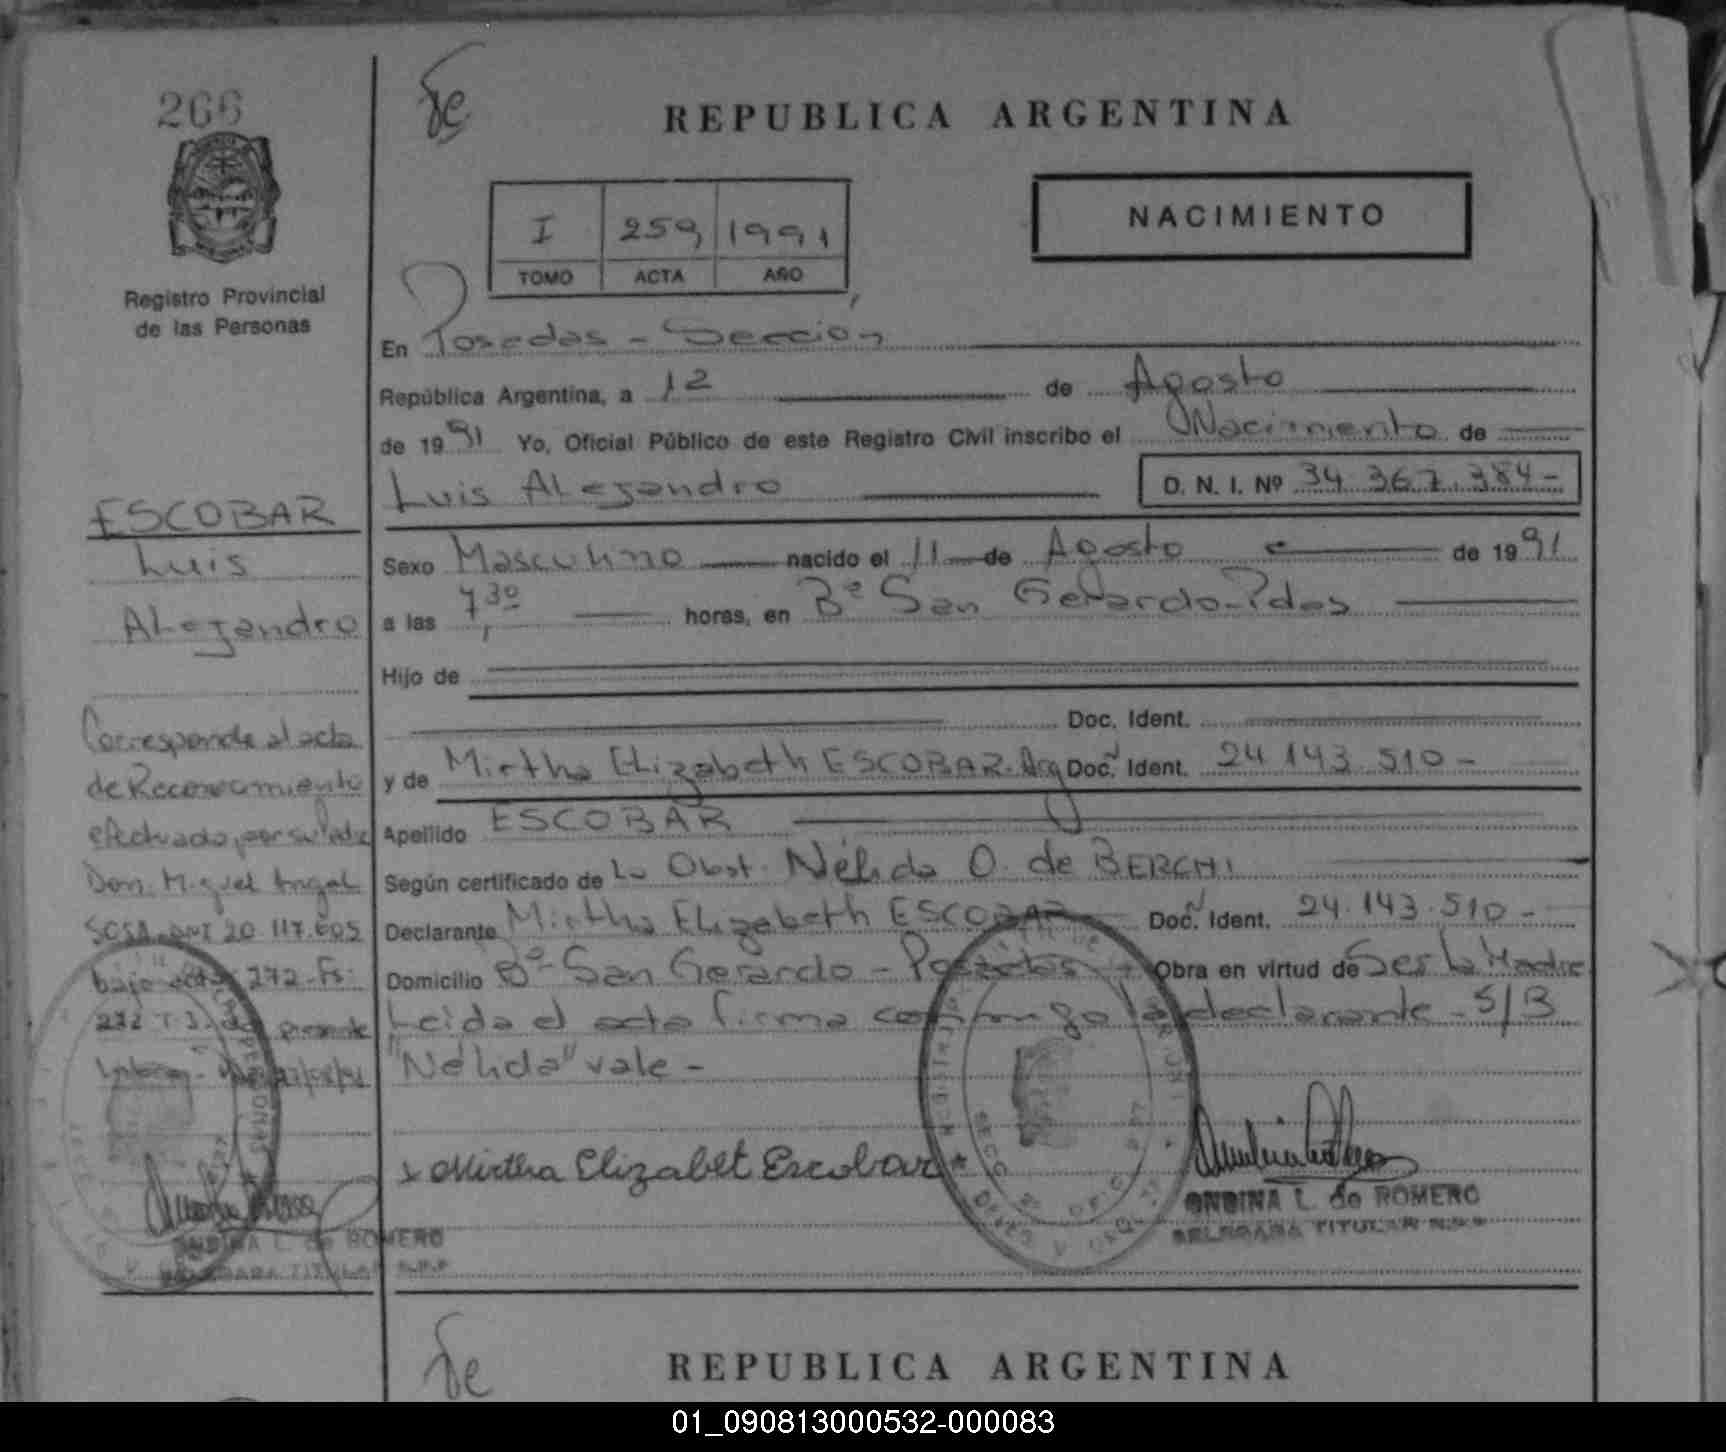 266
Registro Provincial
de las Personas
ESCOBAR
Luis
Alejandro
Corresponde al acta
de Reconocimiento
efectuado por su Padre
Don. Miguel Angel
SOSA DNI 20.117.605
bajo acta 272-Fs:
272 T-3- del presente
ONDINA L. de ROMERO
DELEGADA TITULAR R.P.P.
REPUBLICA ARGENTINA
I 259 1991
TOMO ACTA AÑO
NACIMIENTO
En Posadas - Sección
República Argentina, a 12 de Agosto
de 1991 Yo, Oficial Público de este Registro Civil inscribo el Nacimiento de
Luis Alejandro D. N. I. Nº 34.367.384-
Sexo Masculino nacido el 11 de Agosto de 1991
a las 7,30 horas, en Bº San Gerardo-Pdas
Hijo de
Doc. Ident.
y de Mirtha Elizabeth ESCOBAR-Arg Doc. Ident. 24.143.510-
Apellido ESCOBAR
Según certificado de La Obst. Nélida O. de BERCHI
Declarante Mirtha Elizabeth ESCOBAR Doc. Ident. 24.143.510-
Domicilio Bº San Gerardo - Posadas - Obra en virtud de Ser la Madre
Leida el acta firma conmigo la declarante - S/B
"Nélida" vale -
x Mirtha Elizabet Escobar
ONDINA L. de ROMERO
DELEGADA TITULAR R.P.P.
REPUBLICA ARGENTINA
01_090813000532-000083